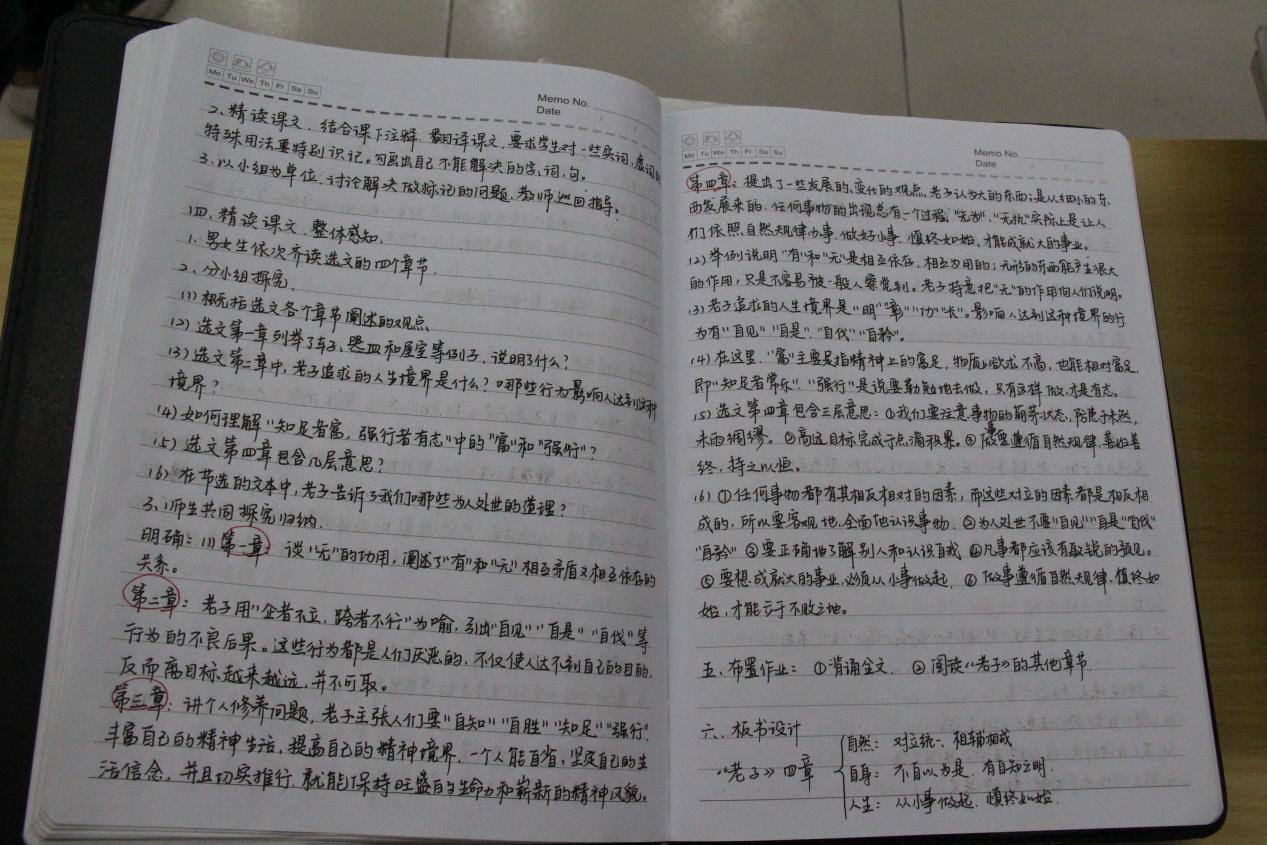 Mo Tu We Th Fr Sa Su
Memo No.
Date
2、精读课文、结合课下注释,翻译课文,要求学生对一些实词、虚词的
特殊用法要特别识记。可画出自己不能解决的字、词、句。
3、以小组为单位,讨论解决做标记的问题,教师巡回指导。
四、精读课文,整体感知,
1、男女生依次齐读选文的四个章节,
2、分小组探究,
(1)概括选文各个章节阐述的观点
(2)选文第一章列举了车子、器皿和屋室等例子,说明了什么?
(3)选文第二章中,老子追求的人生境界是什么?哪些行为影响人达到这种
境界?
(4)如何理解"知足者富,强行者有志"中的"富"和"强行"?
(5)选文第四章包含几层意思?
(6)在节选的文本中,老子告诉了我们哪些为人处世的道理?
3、师生共同探究归纳,
明确:(1)第一章:谈"无"的功用,阐述了"有"和"无"相互矛盾又相互依存的
关系。
第二章:老子用"企者不立,跨者不行"为喻,引出"自见""自是""自伐"等
行为的不良后果。这些行为都是人们厌恶的,不仅使人达不到自己的目的,
反而离目标越来越远,并不可取。
第三章:讲个人修养问题,老子主张人们要"自知""自胜""知足""强行"
丰富自己的精神生活,提高自己的精神境界,一个人能自省,坚定自己的生
活信念,并且切实推行,就能保持旺盛的生命力和崭新的精神风貌。
Mo Tu We Th Fr Sa Su
Memo No.
Date
第四章:提出了一些发展的、变化的观点,老子认为大的东西是从细小的东
西发展来的,任何事物的出现总有一个过程,"无为"、"无执"实际上是让人
们依照自然规律办事,做好小事,慎终如始,才能成就大的事业。
(2)举例说明"有"和"无"是相互依存,相互为用的;无形的东西能产生很大
的作用,只是不容易被一般人察觉到。老子特意把"无"的作用向人们说明。
(3)老子追求的人生境界是"明""彰""功""长"。影响人达到这种境界的行
为有"自见""自是""自伐""自矜"。
(4)在这里,"富"主要是指精神上的富足,物质上欲求不高,也能相对富足,
即"知足者常乐","强行"是说要勤勉地去做,只有这样做,才是有志。
(5)选文第四章包含三层意思:①我们要注意事物的萌芽状态,防患于未然,
未雨绸缪。②高远目标完成于点滴积累。③做事要遵循自然规律,善始善
终,持之以恒。
(6)①任何事物都有其相反相对的因素,而这些对立的因素都是相反相
成的,所以要客观地,全面地认识事物,②为人处世不要"自见""自是""自伐"
"自矜"③要正确地了解别人和认识自我④凡事都应该有敏锐的预见。
⑤要想成就大的事业,必须从小事做起,⑥做事遵循自然规律,慎终如
始,才能立于不败之地。
五、布置作业:①背诵全文,②阅读《老子》的其他章节
六、板书设计
《老子》四章
自然:对立统一、相辅相成
自身:不自以为是,有自知之明,
人生:从小事做起,慎终如始,